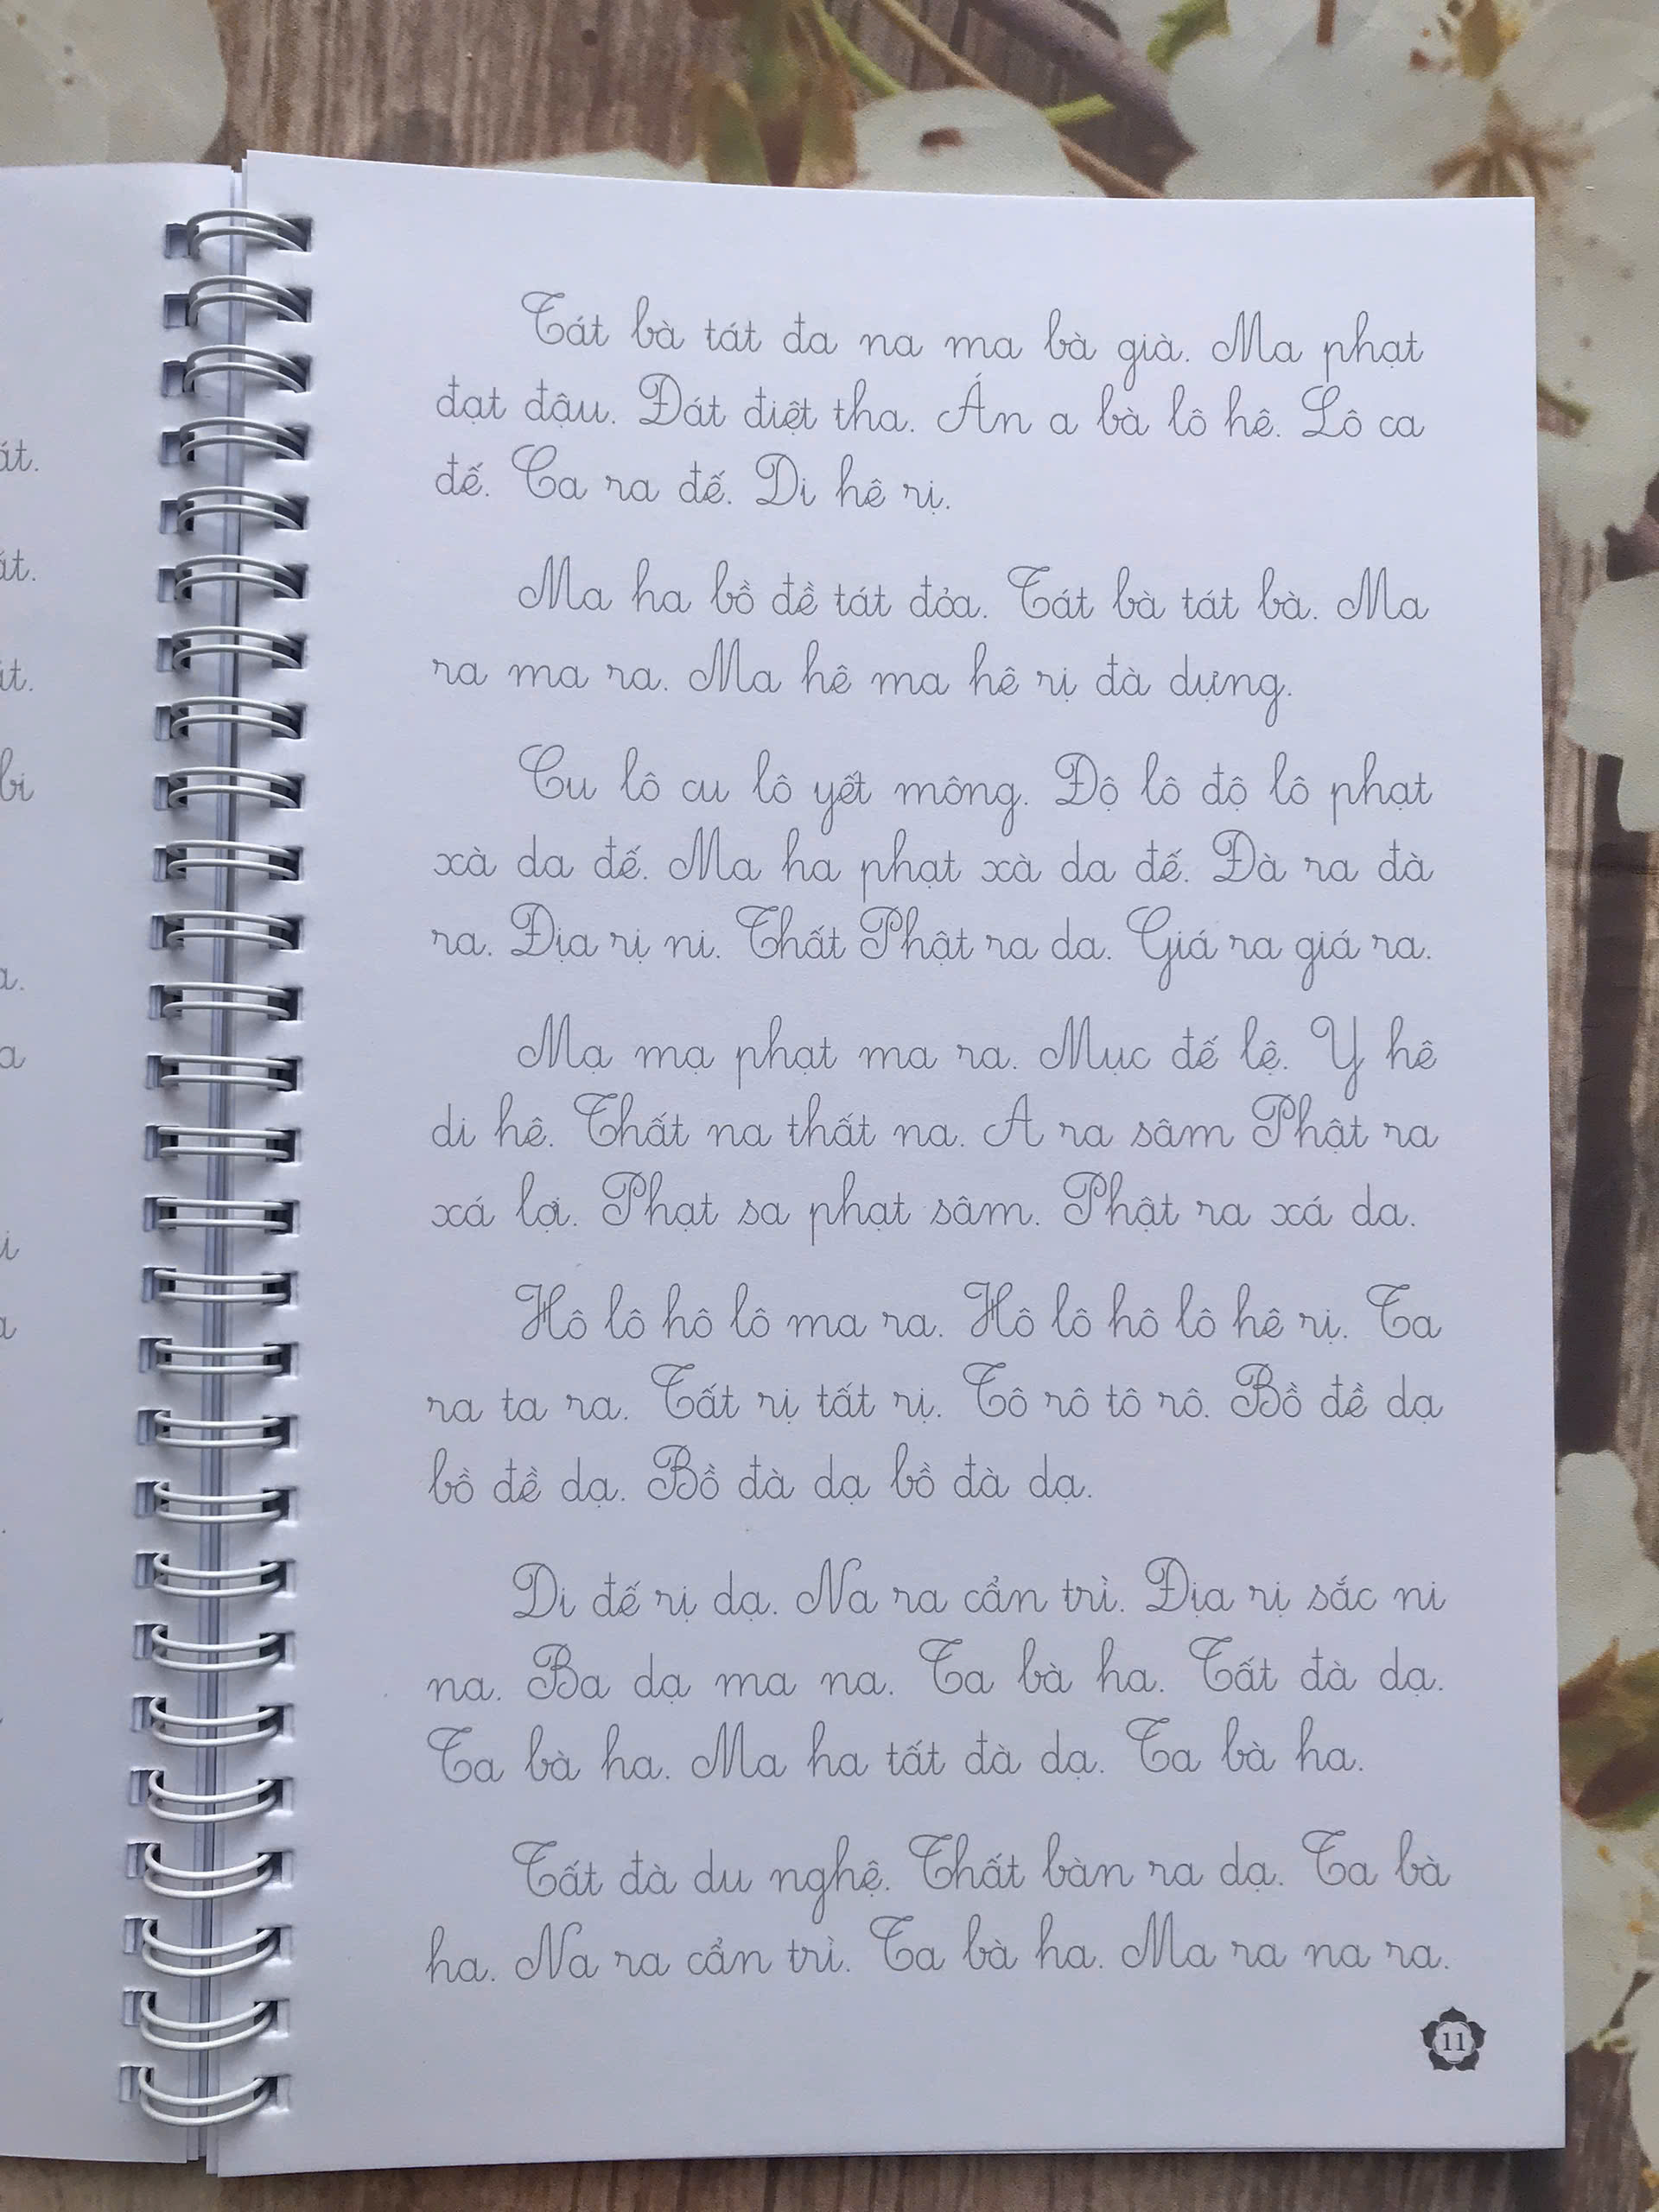 át.
át.
át.
bi
a.
a
i
a
Tát bà tát đa na ma bà già. Ma phạt
đạt đậu. Đát điệt tha. Án a bà lô hê. Lô ca
đế. Ca ra đế. Di hê rị.
Ma ha bồ đề tát đỏa. Tát bà tát bà. Ma
ra ma ra. Ma hê ma hê rị đà dựng.
Cu lô cu lô yết mông. Độ lô độ lô phạt
xà da đế. Ma ha phạt xà da đế. Đà ra đà
ra. Địa rị ni. Thất Phật ra da. Giá ra giá ra.
Mạ mạ phạt ma ra. Mục đế lệ. Y hê
di hê. Thất na thất na. A ra sâm Phật ra
xá lợi. Phạt sa phạt sâm. Phật ra xá da.
Hô lô hô lô ma ra. Hô lô hô lô hê rị. Ta
ra ta ra. Tất rị tất rị. Tô rô tô rô. Bồ đề dạ
bồ đề dạ. Bồ đà dạ bồ đà dạ.
Di đế rị dạ. Na ra cẩn trì. Địa rị sắc ni
na. Ba dạ ma na. Ta bà ha. Tất đà dạ.
Ta bà ha. Ma ha tất đà dạ. Ta bà ha.
Tất đà du nghệ. Thất bàn ra dạ. Ta bà
ha. Na ra cẩn trì. Ta bà ha. Ma ra na ra.
11